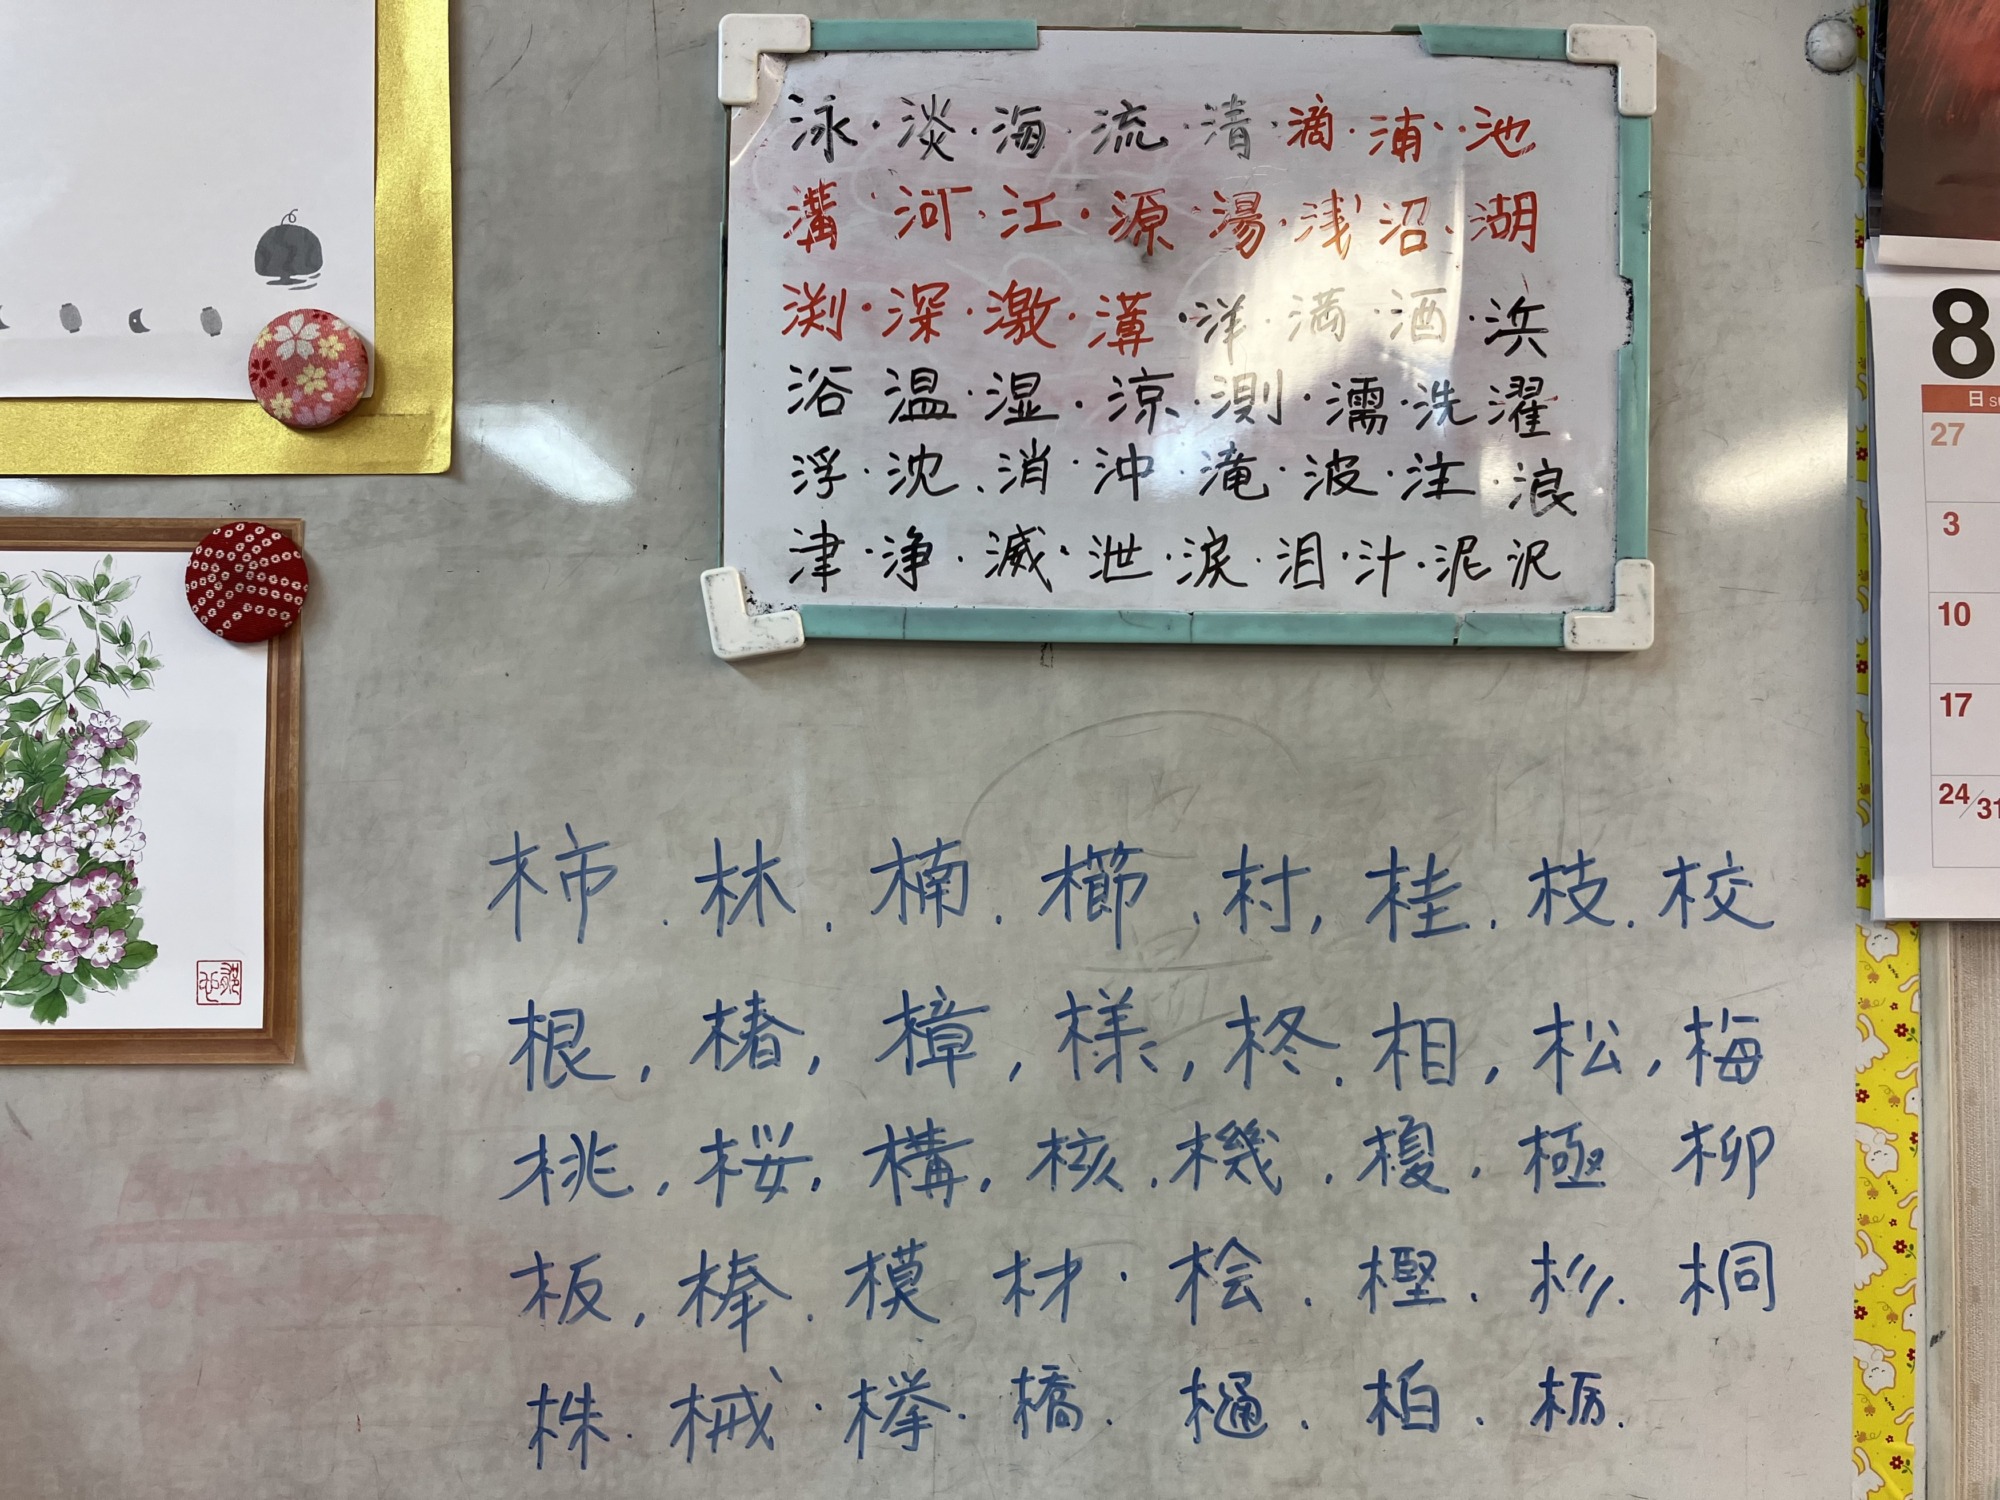 泳・淡・海・流・清・滴・浦・・池
溝・河・江・源・湯・浅・沼・湖
渕・深・激・溝・洋・満・酒・浜
浴 温・湿・涼・測・濡・洗 濯
浮・沈、消・沖・滝・波・注・浪
津・浄・滅・泄・涙・泪・汁・泥 沢
8
日 SU
27
3
10
17
24/31
柿.林.楠.櫛.村,桂.枝.校
根,椿,樟,様,柊.相,松,梅
桃,桜,構,核.機.榎.極 柳
板,棒.模 材・桧.樫.杉.桐
株.械・欅.橋.樋.柏.栃.